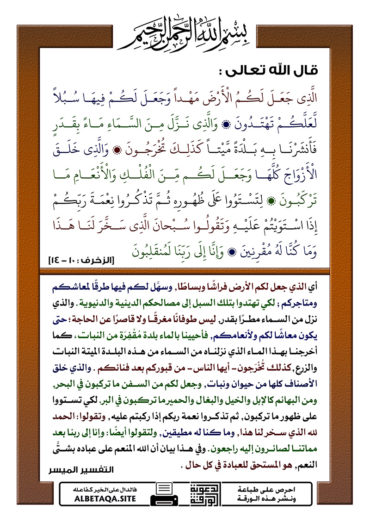 بسم الله الرحمن الرحيم
قال الله تعالى :
الَّذِى جَعَلَ لَكُمُ الْأَرْضَ مَهْداً وَجَعَلَ لَكُمْ فِيهَا سُبُلاً
لَّعَلَّكُمْ تَهْتَدُونَ ۞ وَالَّذِى نَزَّلَ مِنَ السَّمَاءِ مَاءً بِقَدَرٍ
فَأَنْشَرْنَا بِهِ بَلْدَةً مَّيْتاً كَذَلِكَ تُخْرَجُونَ ۞ وَالَّذِى خَلَقَ
الْأَزْوَاجَ كُلَّهَا وَجَعَلَ لَكُم مِّنَ الْفُلْكِ وَالْأَنْعَامِ مَا
تَرْكَبُونَ ۞ لِتَسْتَوُوا عَلَى ظُهُورِهِ ثُمَّ تَذْكُرُوا نِعْمَةَ رَبِّكُمْ
إِذَا اسْتَوَيْتُمْ عَلَيْهِ وَتَقُولُوا سُبْحَانَ الَّذِى سَخَّرَ لَنَا هَذَا
وَمَا كُنَّا لَهُ مُقْرِنِينَ ۞ وَإِنَّا إِلَى رَبِّنَا لَمُنقَلِبُونَ
[الزخرف : ١٠ – ١٤]
أي الذي جعل لكم الأرض فراشًا وبساطًا، وسهّل لكم فيها طرقًا لمعاشكم
ومتاجركم ؛ لكي تهتدوا بتلك السبل إلى مصالحكم الدينية والدنيوية . والذي
نزل من السماء مطرًا بقدر، ليس طوفانًا مغرقًا ولا قاصرًا عن الحاجة؛ حتى
يكون معاشًا لكم ولأنعامكم، فأحيينا بالماء بلدة مُقْفِرَة من النبات، كما
أخرجنا بهذا الماء الذي نزلناه من السماء من هذه البلدة الميتة النبات
والزرع، كذلك تُخْرَجون- أيها الناس - من قبوركم بعد فنائكم . والذي خلق
الأصناف كلها من حيوان ونبات، وجعل لكم من السفن ما تركبون في البحر،
ومن البهائم كالإبل والخيل والبغال والحمير ما تركبون في البر. لكي تستووا
على ظهور ما تركبون، ثم تذكروا نعمة ربكم إذا ركبتم عليه، وتقولوا: الحمد
لله الذي سخر لنا هذا، وما كنا له مطيقين، ولتقولوا أيضًا: وإنا إلى ربنا بعد
مماتنا لصائرون إليه راجعون. وفي هذا بيان أن الله المنعم على عباده بشتَّى
النعم، هو المستحق للعبادة في كل حال .
التفسير الميسر
احرص على طباعة
ونشر هذه الورقة
الدعوية
الورقة
فالدال على الخير كفاعله
ALBETAQA.SITE